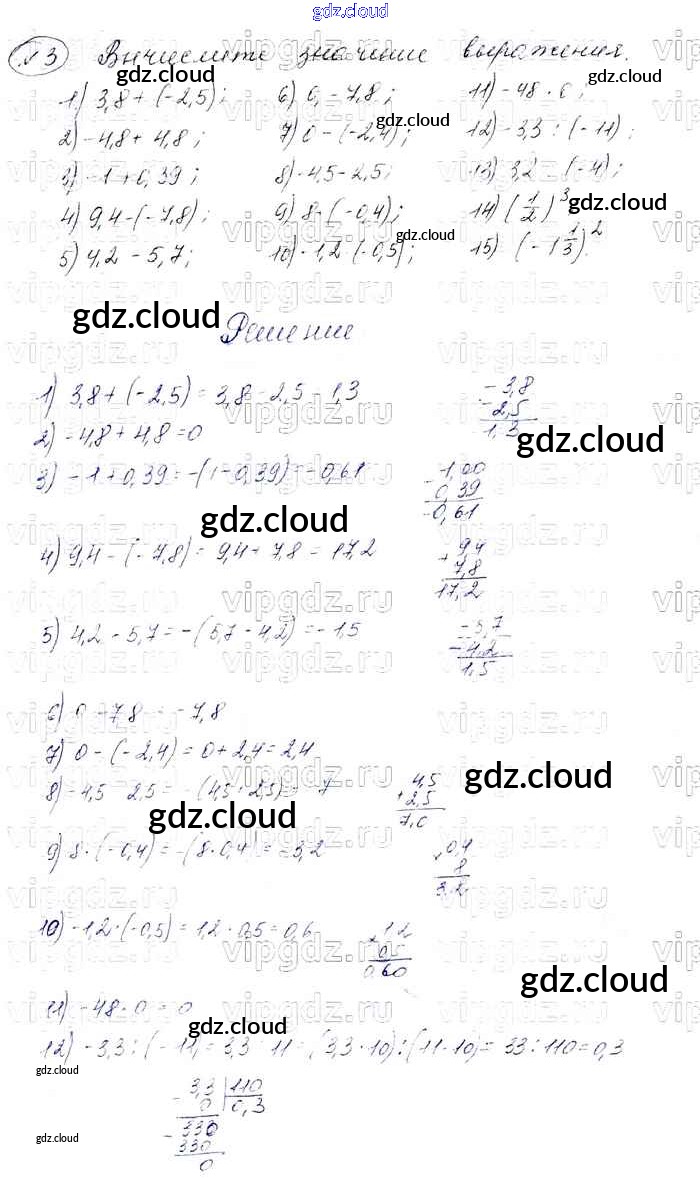 gdz.cloud
№3 Вычислите значение выражения.
1) 3,8 + (-2,5); 6) 0 - 7,8; 11) -48 · 0;
2) -4,8 + 4,8; 7) 0 - (-2,4); 12) -3,3 : (-11);
3) -1 + 0,39; 8) -4,5 - 2,5; 13) 3,2 (-4);
4) 9,4 - (-7,8); 9) 8 · (-0,4); 14) (1/2)³
5) 4,2 - 5,7; 10) -1,2 (-0,5); 15) (-1 1/3)².
Решение
1) 3,8 + (-2,5) = 3,8 - 2,5 = 1,3
- 3,8
2,5
1,3
2) -4,8 + 4,8 = 0
3) -1 + 0,39 = -(1 - 0,39) = -0,61
- 1,00
0,39
0,61
4) 9,4 - (-7,8) = 9,4 + 7,8 = 17,2
+ 9,4
7,8
17,2
5) 4,2 - 5,7 = -(5,7 - 4,2) = -1,5
- 5,7
4,2
1,5
6) 0 - 7,8 = -7,8
7) 0 - (-2,4) = 0 + 2,4 = 2,4
8) -4,5 - 2,5 = -(4,5 + 2,5) = -7
4,5
+ 2,5
7,0
9) 8 · (-0,4) = -(8 · 0,4) = -3,2
× 0,4
8
3,2
10) -1,2 · (-0,5) = 1,2 · 0,5 = 0,6
× 1,2
0,5
0,60
11) -48 · 0 = 0
12) -3,3 : (-11) = 3,3 : 11 = (3,3 · 10) : (11 · 10) = 33 : 110 = 0,3
- 3,3 | 110
0 | 0,3
- 330
330
0
gdz.cloud
vipgdz.ru